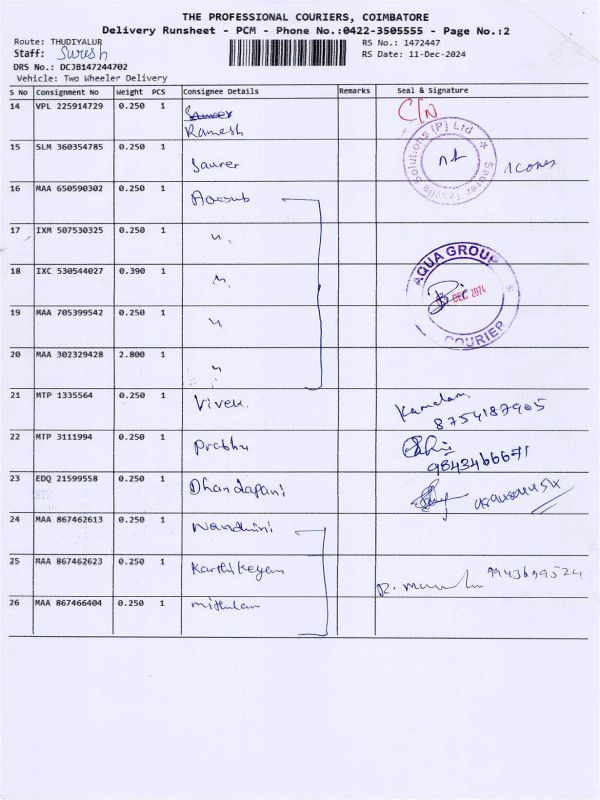 THE PROFESSIONAL COURIERS, COIMBATORE
Delivery Runsheet - PCM - Phone No.:0422-3505555 - Page No.:2
Route: THUDIYALUR
Staff: Suresh
DRS No.: DCJB147244702
Vehicle: Two Wheeler Delivery
RS No.: 1472447
RS Date: 11-Dec-2024
S No Consignment No Weight PCS Consignee Details Remarks Seal & Signature
14 VPL 225914729 0.250 1 Saurer C/N
Ramesh
15 SLM 360354785 0.250 1 Saurer
Solutions (P) Ltd
16 MAA 650590302 0.250 1
17 IXM 507530325 0.250 1 "
18 IXC 530544027 0.390 1 "
AQUA GROUP
DEC 2024
COURIER
19 MAA 705399542 0.250 1 "
20 MAA 302329428 2.800 1 "
21 MTP 1335564 0.250 1 Vivek. Kamalam
8754187905
22 MTP 3111994 0.250 1 Prabhu
9843466671
23 EDQ 21599558 0.250 1 Dhandapani
24 MAA 867462613 0.250 1 Nandhini
25 MAA 867462623 0.250 1 Karthikeyan 9943699524
26 MAA 867466404 0.250 1